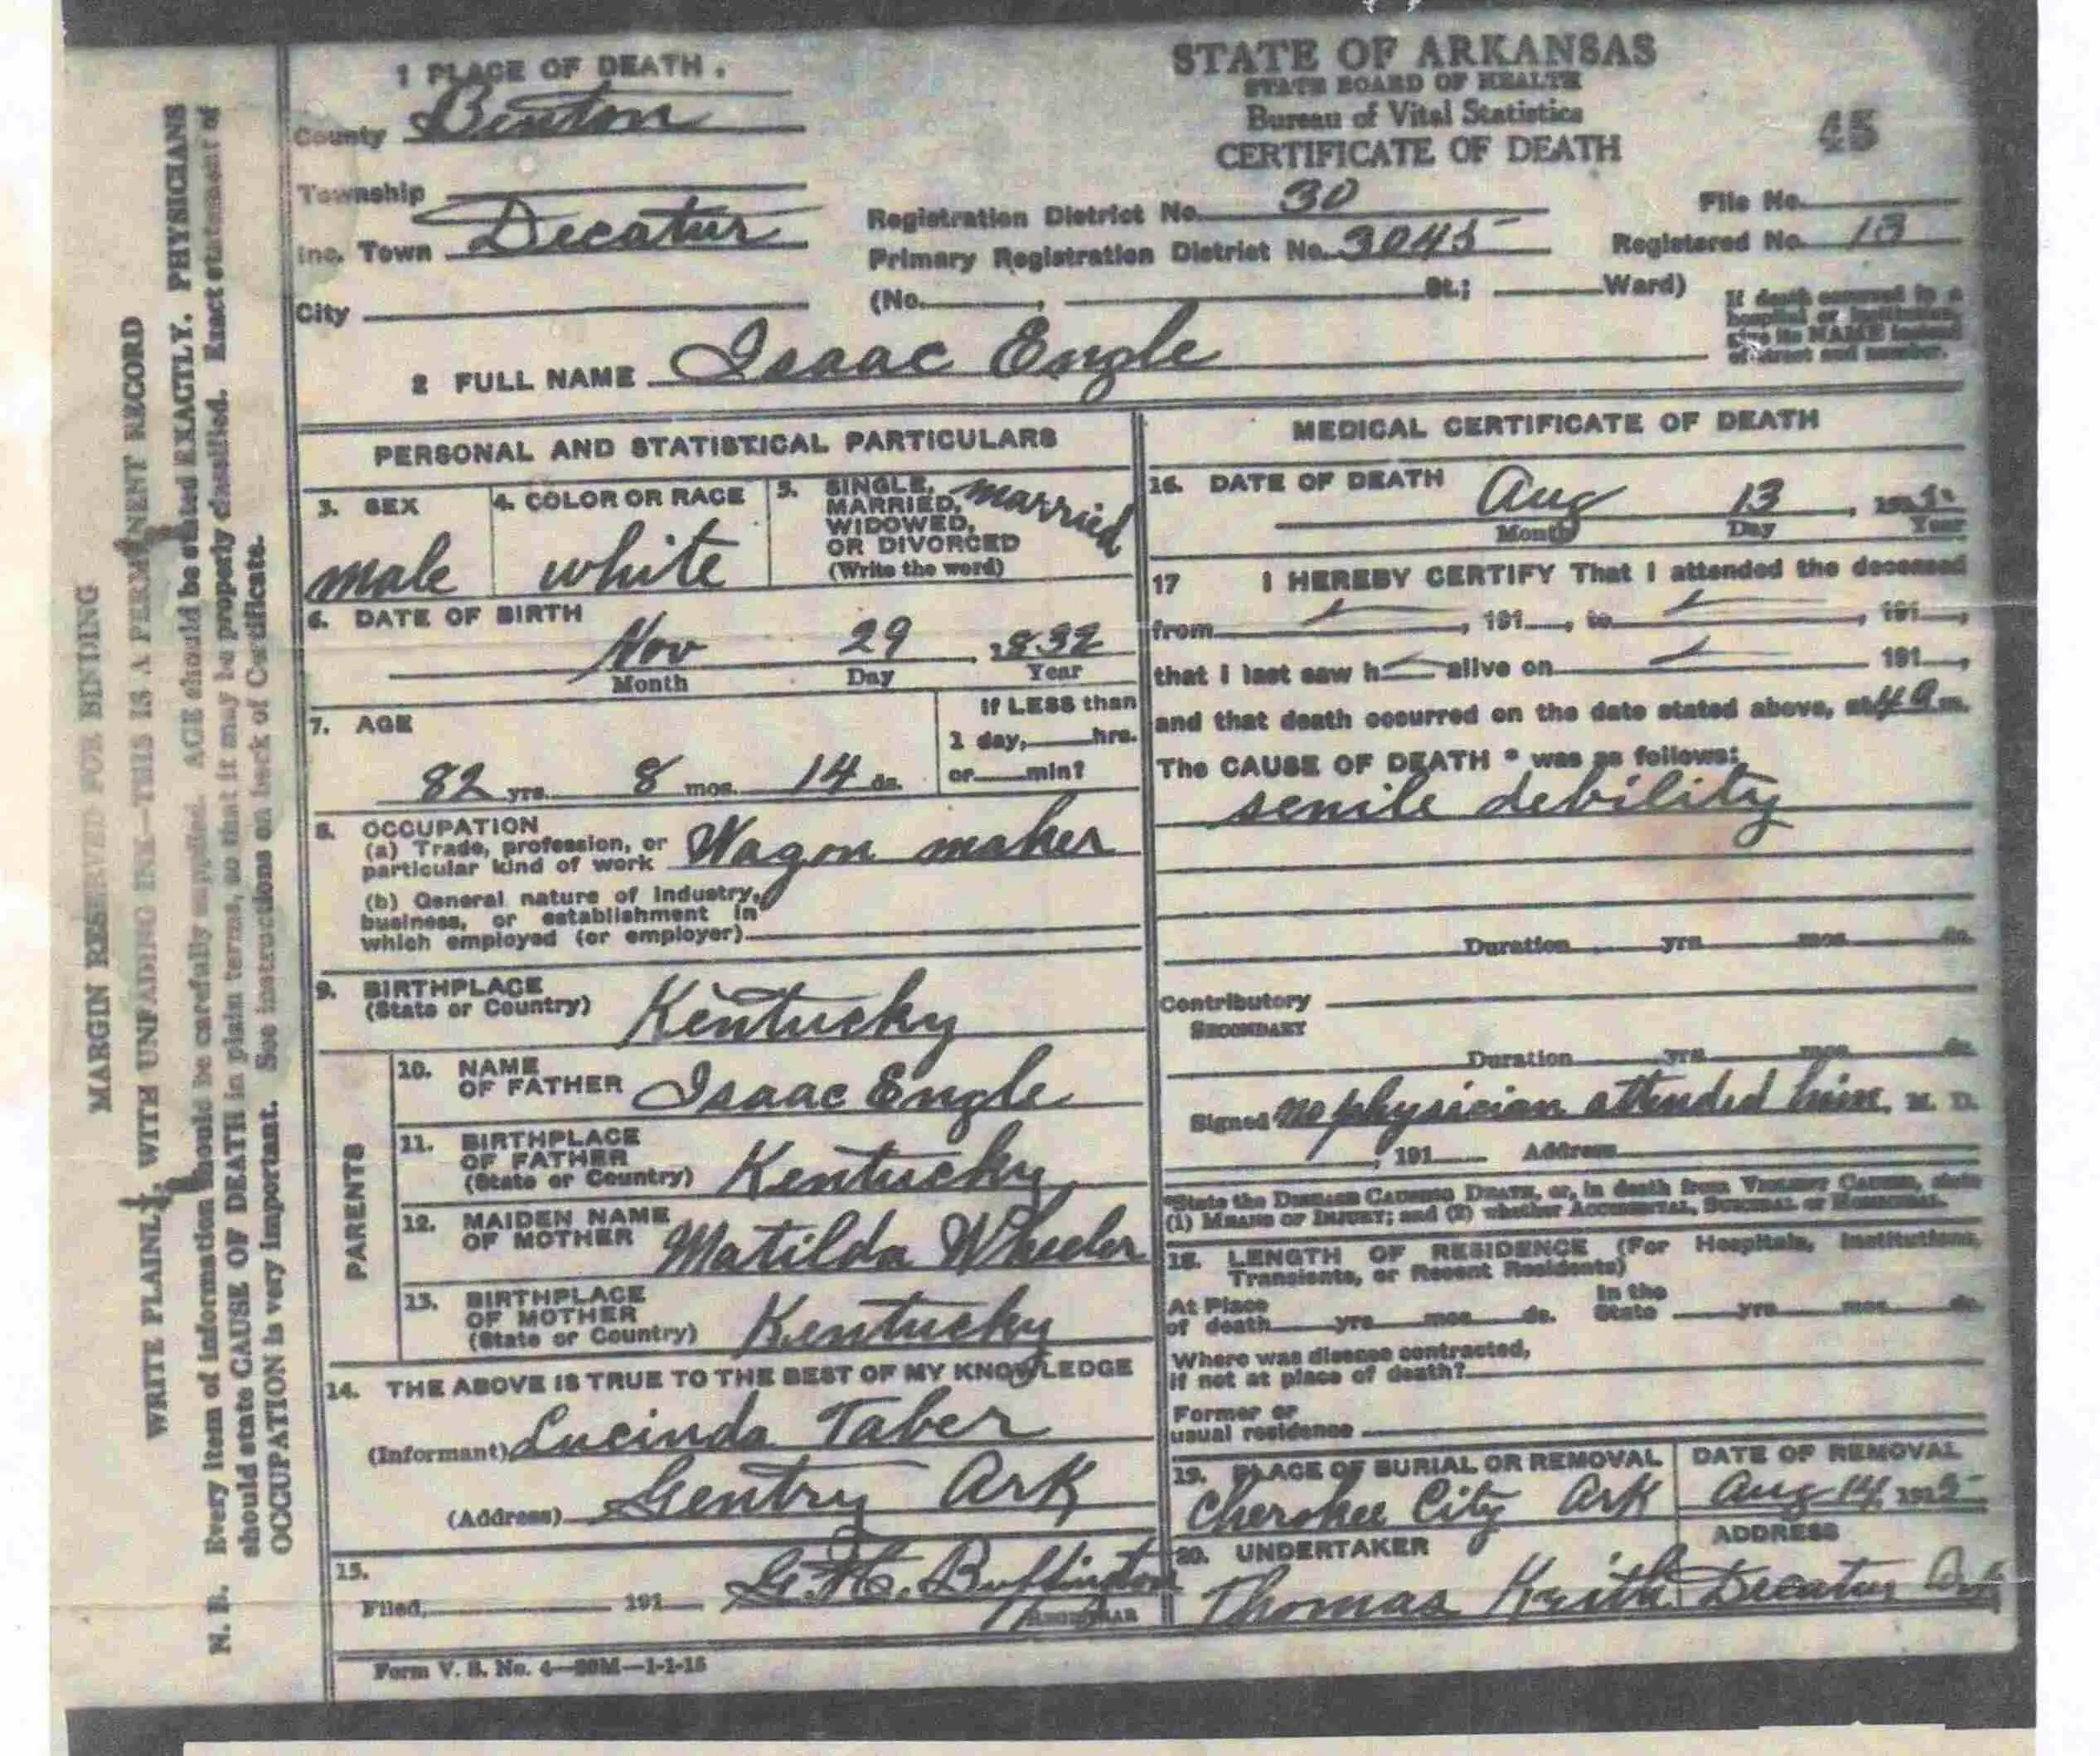 1 PLACE OF DEATH.
County Benton
Township
Inc. Town Decatur
City
STATE OF ARKANSAS
STATE BOARD OF HEALTH
Bureau of Vital Statistics
CERTIFICATE OF DEATH
45
Registration District No. 30
File No.
Primary Registration District No. 3045
Registered No. 13
(No. , St.; Ward)
If death occurred in a
hospital or institution,
give its NAME instead
of street and number.
2 FULL NAME Isaac Engle
PERSONAL AND STATISTICAL PARTICULARS
3. SEX
male
4. COLOR OR RACE
white
5. SINGLE, married
MARRIED,
WIDOWED,
OR DIVORCED
(Write the word)
6. DATE OF BIRTH
Nov 29, 1832
Month Day Year
7. AGE
82 yrs. 8 mos. 14 ds.
If LESS than
1 day, hrs.
or min?
8. OCCUPATION
(a) Trade, profession, or
particular kind of work Wagon maker
(b) General nature of industry,
business, or establishment in
which employed (or employer)
9. BIRTHPLACE
(State or Country) Kentucky
PARENTS
10. NAME
OF FATHER Isaac Engle
11. BIRTHPLACE
OF FATHER
(State or Country) Kentucky
12. MAIDEN NAME
OF MOTHER Matilda Wheeler
13. BIRTHPLACE
OF MOTHER
(State or Country) Kentucky
14. THE ABOVE IS TRUE TO THE BEST OF MY KNOWLEDGE
(Informant) Lucinda Taber
(Address) Gentry Ark
15.
Filed, 191 Buffington
REGISTRAR
Form V. S. No. 4—1-1-15
MEDICAL CERTIFICATE OF DEATH
16. DATE OF DEATH
Aug 13,
Month Day Year
17 I HEREBY CERTIFY That I attended the deceased
from , 191 , to , 191 ,
that I last saw h alive on 191 ,
and that death occurred on the date stated above, at 4 a m.
The CAUSE OF DEATH * was as follows:
senile debility
Duration yrs mos ds.
Contributory
SECONDARY
Duration yrs mos ds.
Signed no physician attended him, M. D.
, 191 Address
*State the DISEASE CAUSING DEATH, or, in death from VIOLENT CAUSES, state
(1) MEANS OF INJURY; and (2) whether ACCIDENTAL, SUICIDAL or HOMICIDAL.
18. LENGTH OF RESIDENCE (For Hospitals, Institutions,
Transients, or Recent Residents)
At Place
of death yrs mos ds.
In the
State yrs mos ds.
Where was disease contracted,
if not at place of death?
Former or
usual residence
19. PLACE OF BURIAL OR REMOVAL
Cherokee City Ark
DATE OF REMOVAL
Aug 14, 1915
20. UNDERTAKER
Thomas Keith
ADDRESS
Decatur Ark
MARGIN RESERVED FOR BINDING
WRITE PLAINLY, WITH UNFADING INK—THIS IS A PERMANENT RECORD
N. B. Every item of information should be carefully supplied. AGE should be stated EXACTLY. PHYSICIANS
should state CAUSE OF DEATH in plain terms, so that it may be properly classified. Exact statement of
OCCUPATION is very important. See instructions on back of Certificate.